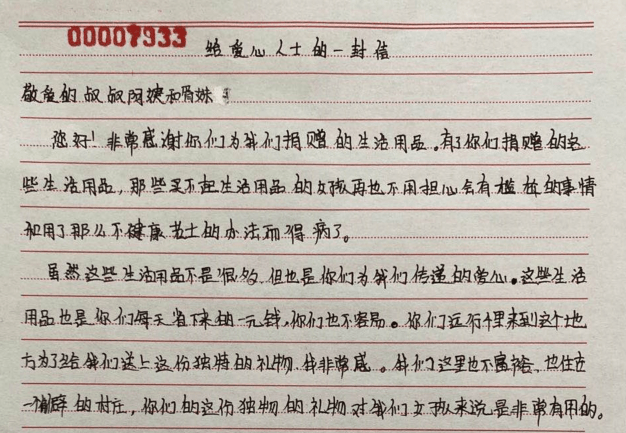 00007933
给爱心人士的一封信
敬爱的叔叔阿姨和哥姝
您好！非常感谢你们为我们捐赠的生活用品。有了你们捐赠的这
些生活用品，那些买不起生活用品的女孩再也不用担心会有尴尬的事情
和用了那么不健康 的办法而得病了。
虽然这些生活用品不是很多，但也是你们为我们传递的爱心。这些生活
用品也是你们每天省下来的一元钱，你们也不容易。你们远行千里来到这个地
方为了给我们送上这份独特的礼物，我非常感。我们这里也不富裕，也住在
一偏僻的村庄，你们的这份独物的礼物对我们女孩来说是非常有用的。